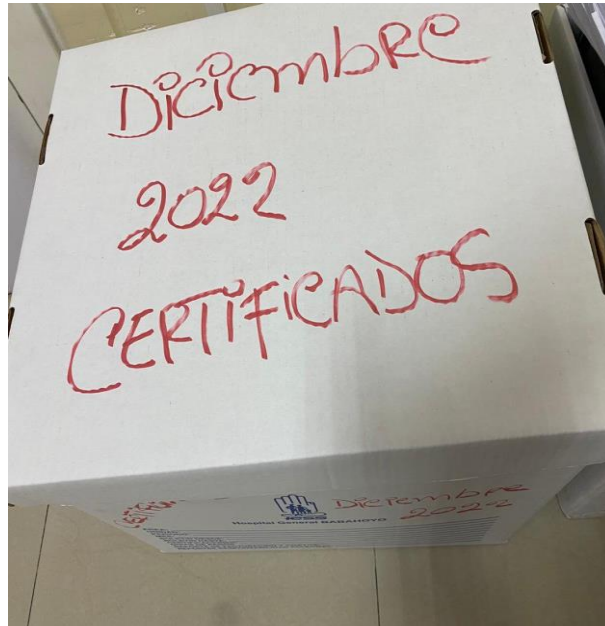 Diciembre
2022
CERTIFICADOS
Diciembre
2022
IESS
Hospital General BABAHOYO